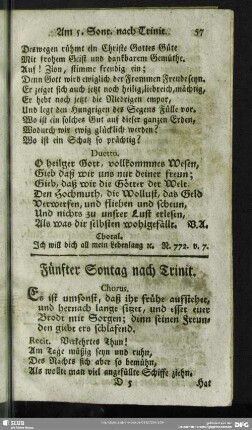 Am 5. Sont. nach Trinit. 57
Deswegen rühmt ein Christe Gottes Güte
Mit frohem Geist und dankbarem Gemüthe.
Auf! Zion, stimme freudig ein;
Denn Gott wird ewiglich der Frommen Freude seyn.
Er zeiget sich auch jetzt noch heilig, liebreich, mächtig,
Er hebt noch jetzt die Niedrigen empor,
Und legt den Hungrigen des Segens Fülle vor.
Wo ist ein solches Gut auf dieser ganzen Erden,
Wodurch wir ewig glücklich werden?
Wo ist ein Schatz so prächtig?
Duetto.
O heilger Gott, vollkommnes Wesen,
Gieb daß wir uns nur deiner freun;
Gieb, daß wir die Götter der Welt,
Den Hochmuth, die Wollust, das Geld
Verwerfen, und fliehen und scheun,
Und nichts zu unsrer Lust erlesen,
Als was dir selbsten wohlgefällt. V.A.
Choral.
Ich will dich all mein Lebenlang ꝛc. N. 772. v. 7.
Fünfter Sontag nach Trinit.
Chorus.
Es ist umsonst, daß ihr frühe aufstehet,
und hernach lange sitzet, und esset euer
Brodt mit Sorgen; denn seinen Freun-
den giebt ers schlafend.
Recit. Verkehrtes Thun!
Am Tage müßig seyn und ruhn,
Des Nachts sich aber so bemühn,
Als wollte man viel angefüllte Schiffe ziehn,
D 5 Hat
SLUB